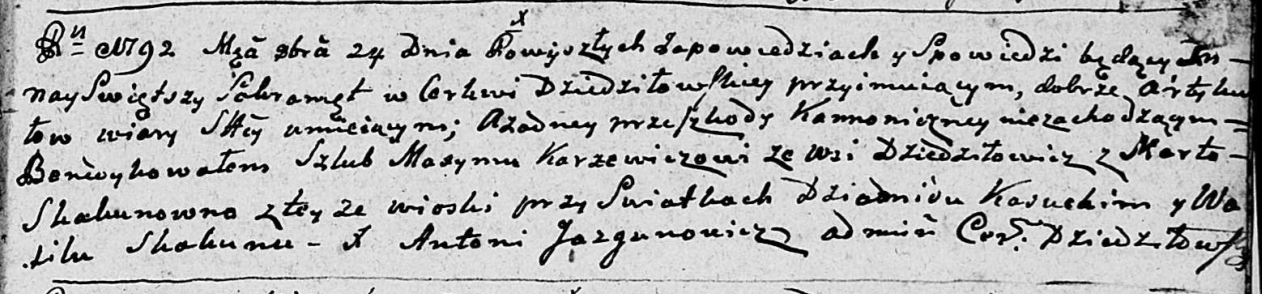 Rn 1792 Mcą 8brā 24 Dnia Powyszłych Zapowiedziach y Spowiedzi będący
nayświętszy Sakramęt w Cerkwi Dziedziłowskiey przyimuiącym, dobrze Artyku
łow wiary Stey umieiącym; Ażadney przeszkody Kannoniczney niezachodzącym
Benedykowałem Szlub Maxymu Karzewiczowi ze wsi Dziedziłowicz z Marto
Skakunowno z tey ze wioski przy Swiatkach Dziadniću Kasuckim y Wa
silu Skakunu - X Antoni Jazgunowicz admiń Cer. Dziedziłows